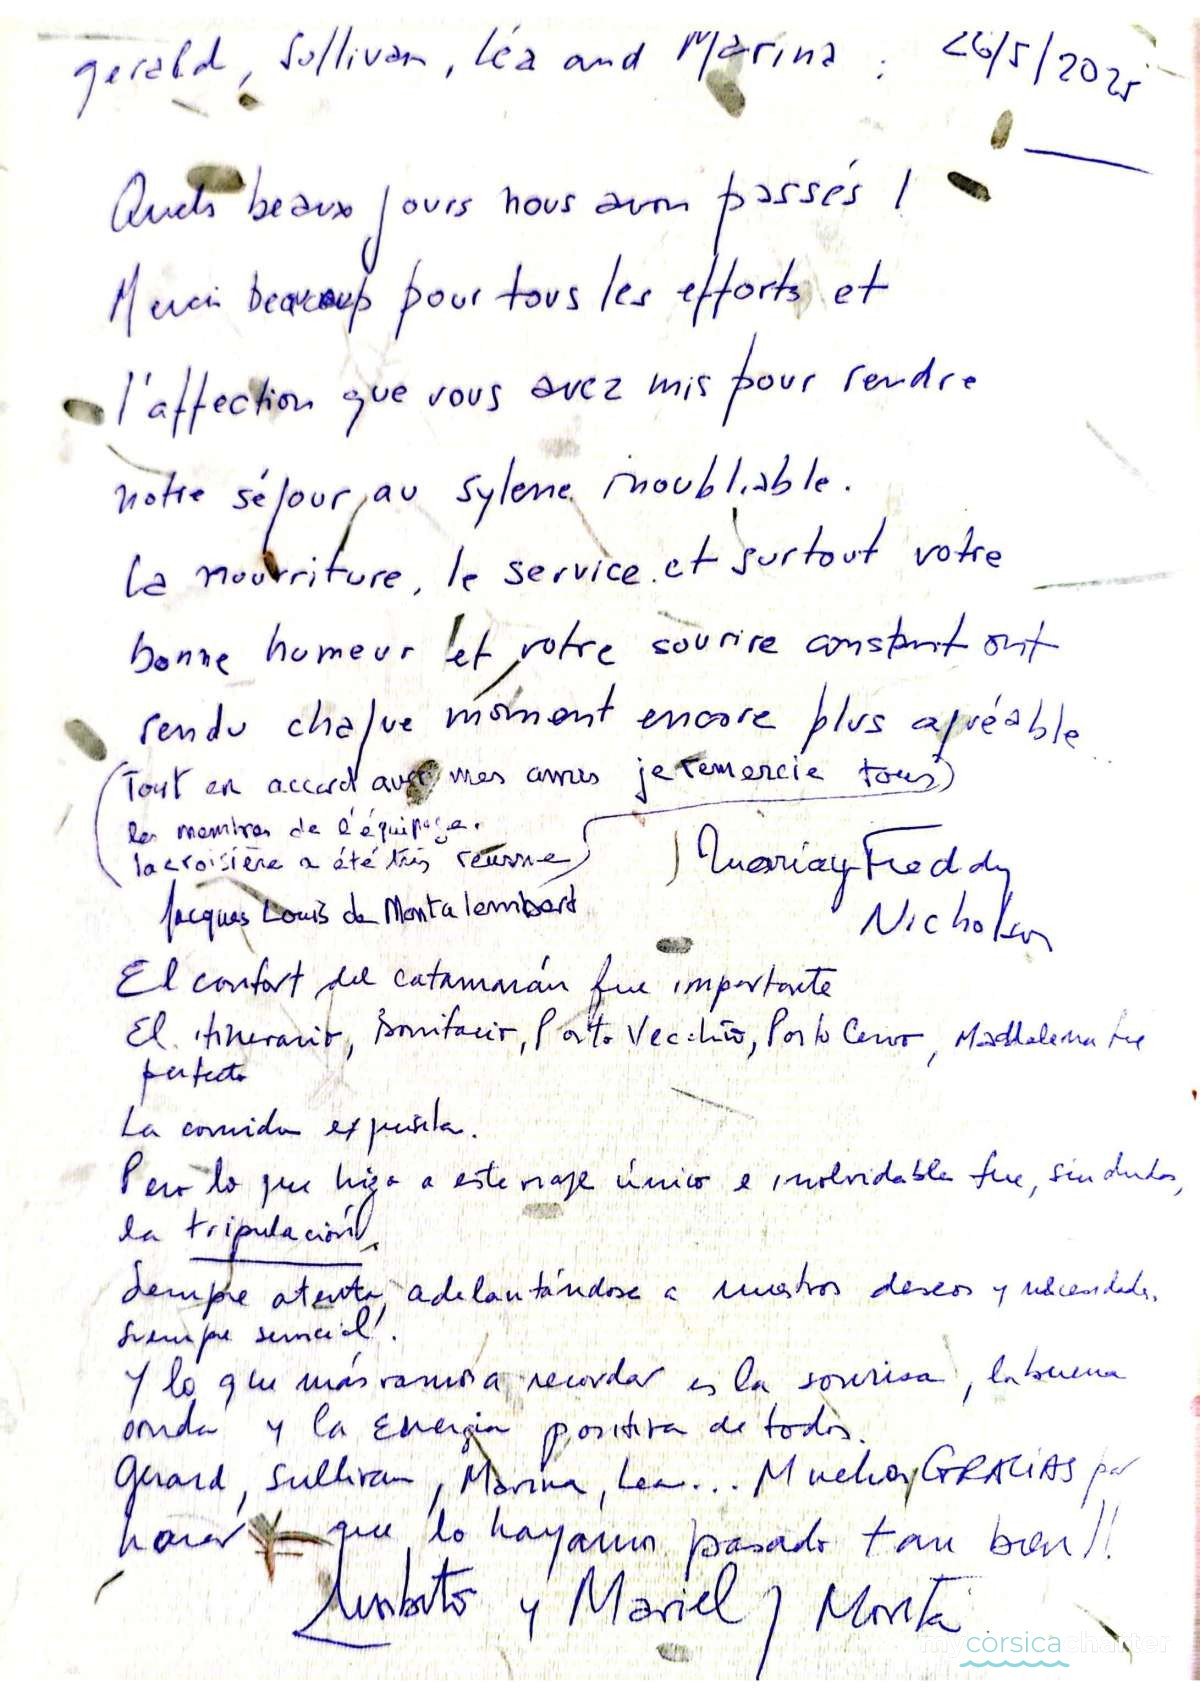 Gerald, Sullivan, Léa and Marina : 26/5/2025
Quels beaux jours nous avon passés !
Merci beaucoup pour tous les efforts et
l'affection que vous avez mis pour rendre
notre séjour au Sylene inoubliable.
La nourriture, le service et surtout votre
bonne humeur et votre sourire constant ont
rendu chaque moment encore plus agréable
(Tout en accord avec mes amis je remercie tous
les membres de l'équipage.
la croisière a été très réussie)
Maria y Freddy
Nicholson
Jacques Louis de Montalembert
El confort del catamarán fue importante
El itinerario, Bonifacio, Porto Vecchio, Porto Cervo, Maddalena fue
perfecto
La comida exquisita.
Pero lo que hizo a este viaje único e inolvidable fue, sin dudas,
la tripulación.
Siempre atenta, adelantándose a nuestros deseos y necesidades.
Siempre servicial.
Y lo que más vamos a recordar es la sonrisa, la buena
onda y la energía positiva de todos.
Gerard, Sullivan, Marina, Lea... Muchas GRACIAS por
hacer que lo hayamos pasado tan bien!!
y Mariel
mycorsicacharter